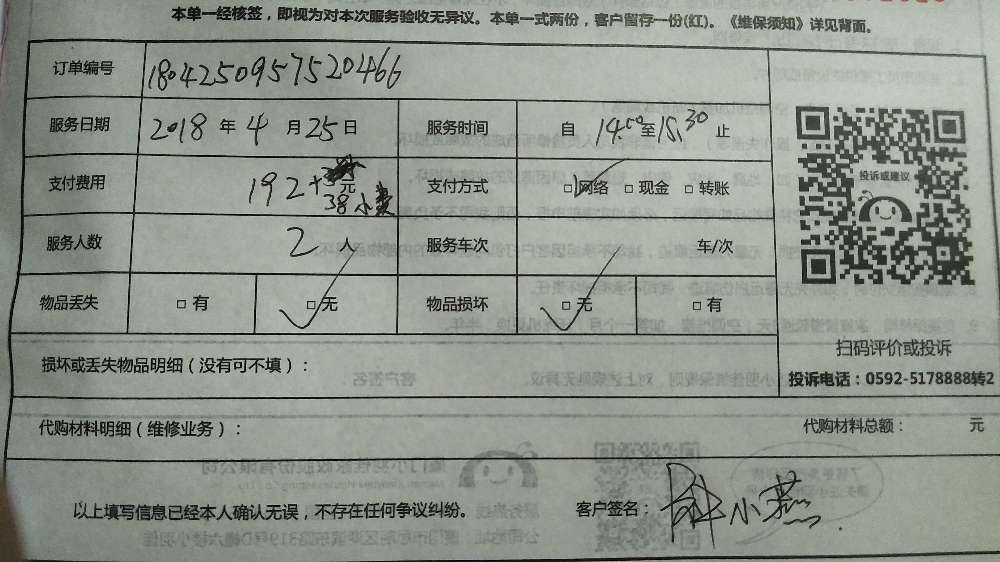 本单一经核签，即视为对本次服务验收无异议。本单一式两份，客户留存一份(红)。《维保须知》详见背面。
订单编号 1804250957520466
服务日期 2018 年 4 月 25 日 服务时间 自 14.00 至 15.30 止
支付费用 192+ 元 38小费 支付方式 □网络 □现金 □转账
服务人数 2 人 服务车次 车/次
投诉或建议
物品丢失 □有 □无 物品损坏 □无 □有
扫码评价或投诉
损坏或丢失物品明细（没有可不填）：
投诉电话：0592-5178888转2
代购材料明细（维修业务）： 代购材料总额： 元
以上填写信息已经本人确认无误，不存在任何争议纠纷。 客户签名： 小燕